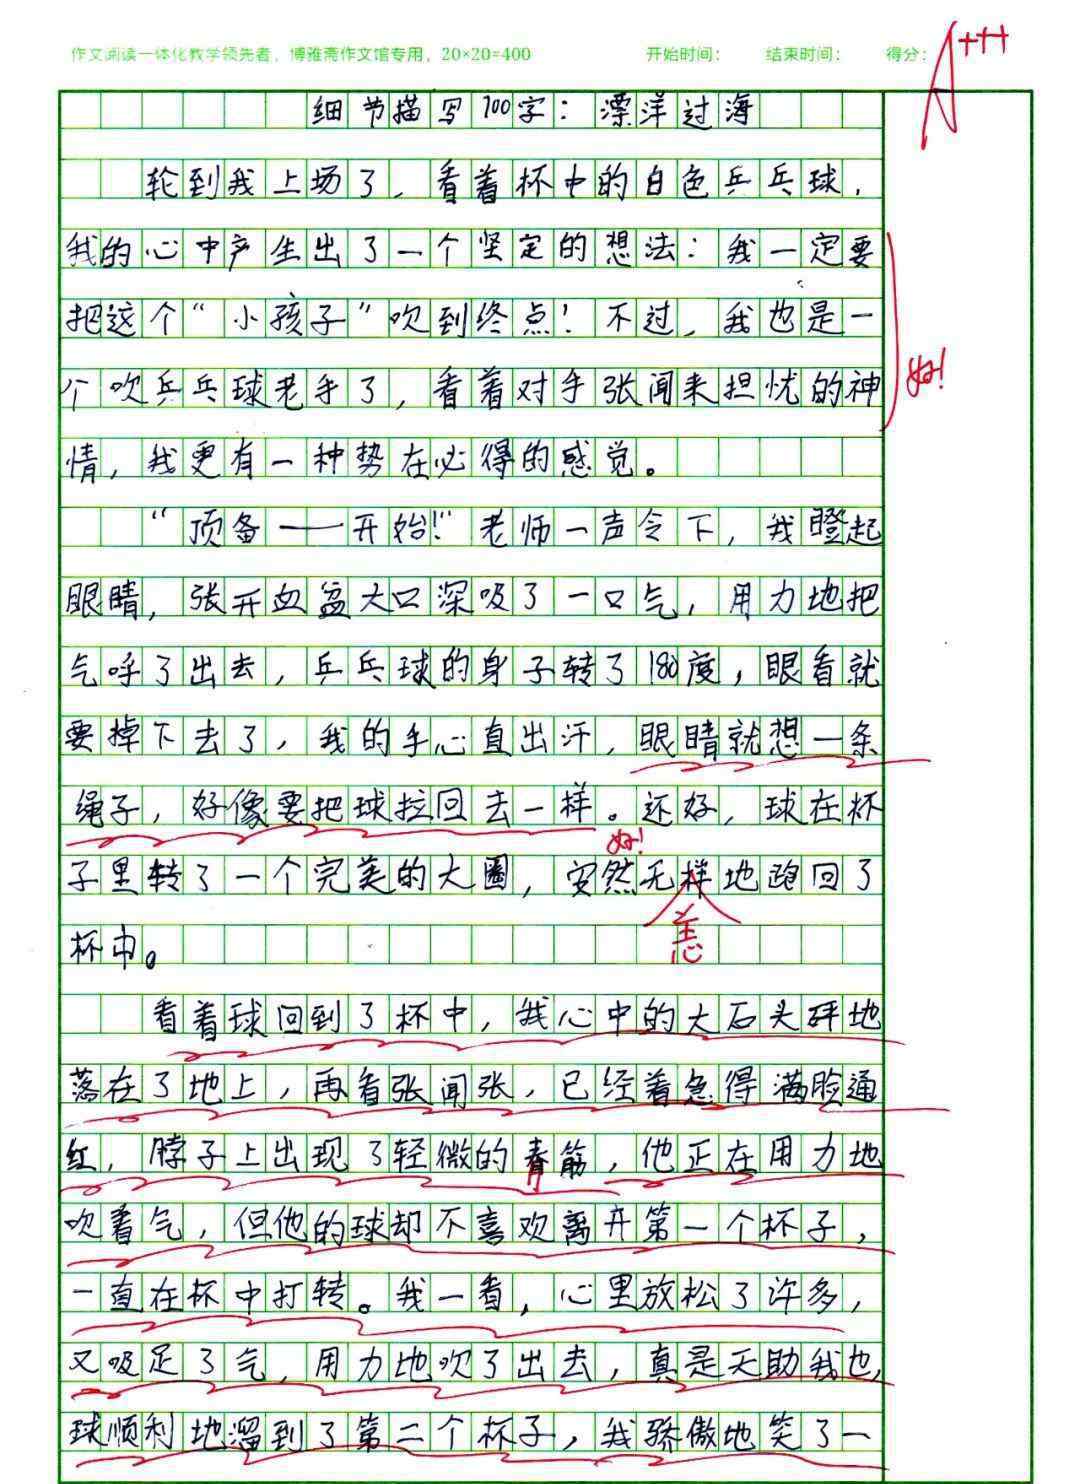 作文阅读一体化教学领先者，博雅斋作文馆专用，20×20=400 开始时间： 结束时间： 得分：
A+++
细节描写700字：漂洋过海
轮到我上场了，看着杯中的白色乒乓球，
我的心中产生出了一个坚定的想法：我一定要
把这个“小孩子”吹到终点！不过，我也是一
个吹乒乓球老手了，看着对手张闻来担忧的神
好！
情，我更有一种势在必得的感觉。
“顶备——开始！”老师一声令下，我瞪起
眼睛，张开血盆大口深吸了一口气，用力地把
气呼了出去，乒乓球的身子转了180度，眼看就
要掉下去了，我的手心直出汗，眼睛就想一条
绳子，好像要把球拉回去一样。还好，球在杯
好！
子里转了一个完美的大圈，安然无样地跑回了
恙
杯中。
看着球回到了杯中，我心中的大石头砰地
落在了地上，再看张闻张，已经着急得满脸通
红，脖子上出现了轻微的青筋，他正在用力地
吹着气，但他的球却不喜欢离开第一个杯子，
一直在杯中打转。我一看，心里放松了许多，
又吸足了气，用力地吹了出去，真是天助我也，
球顺利地溜到了第二个杯子，我骄傲地笑了一